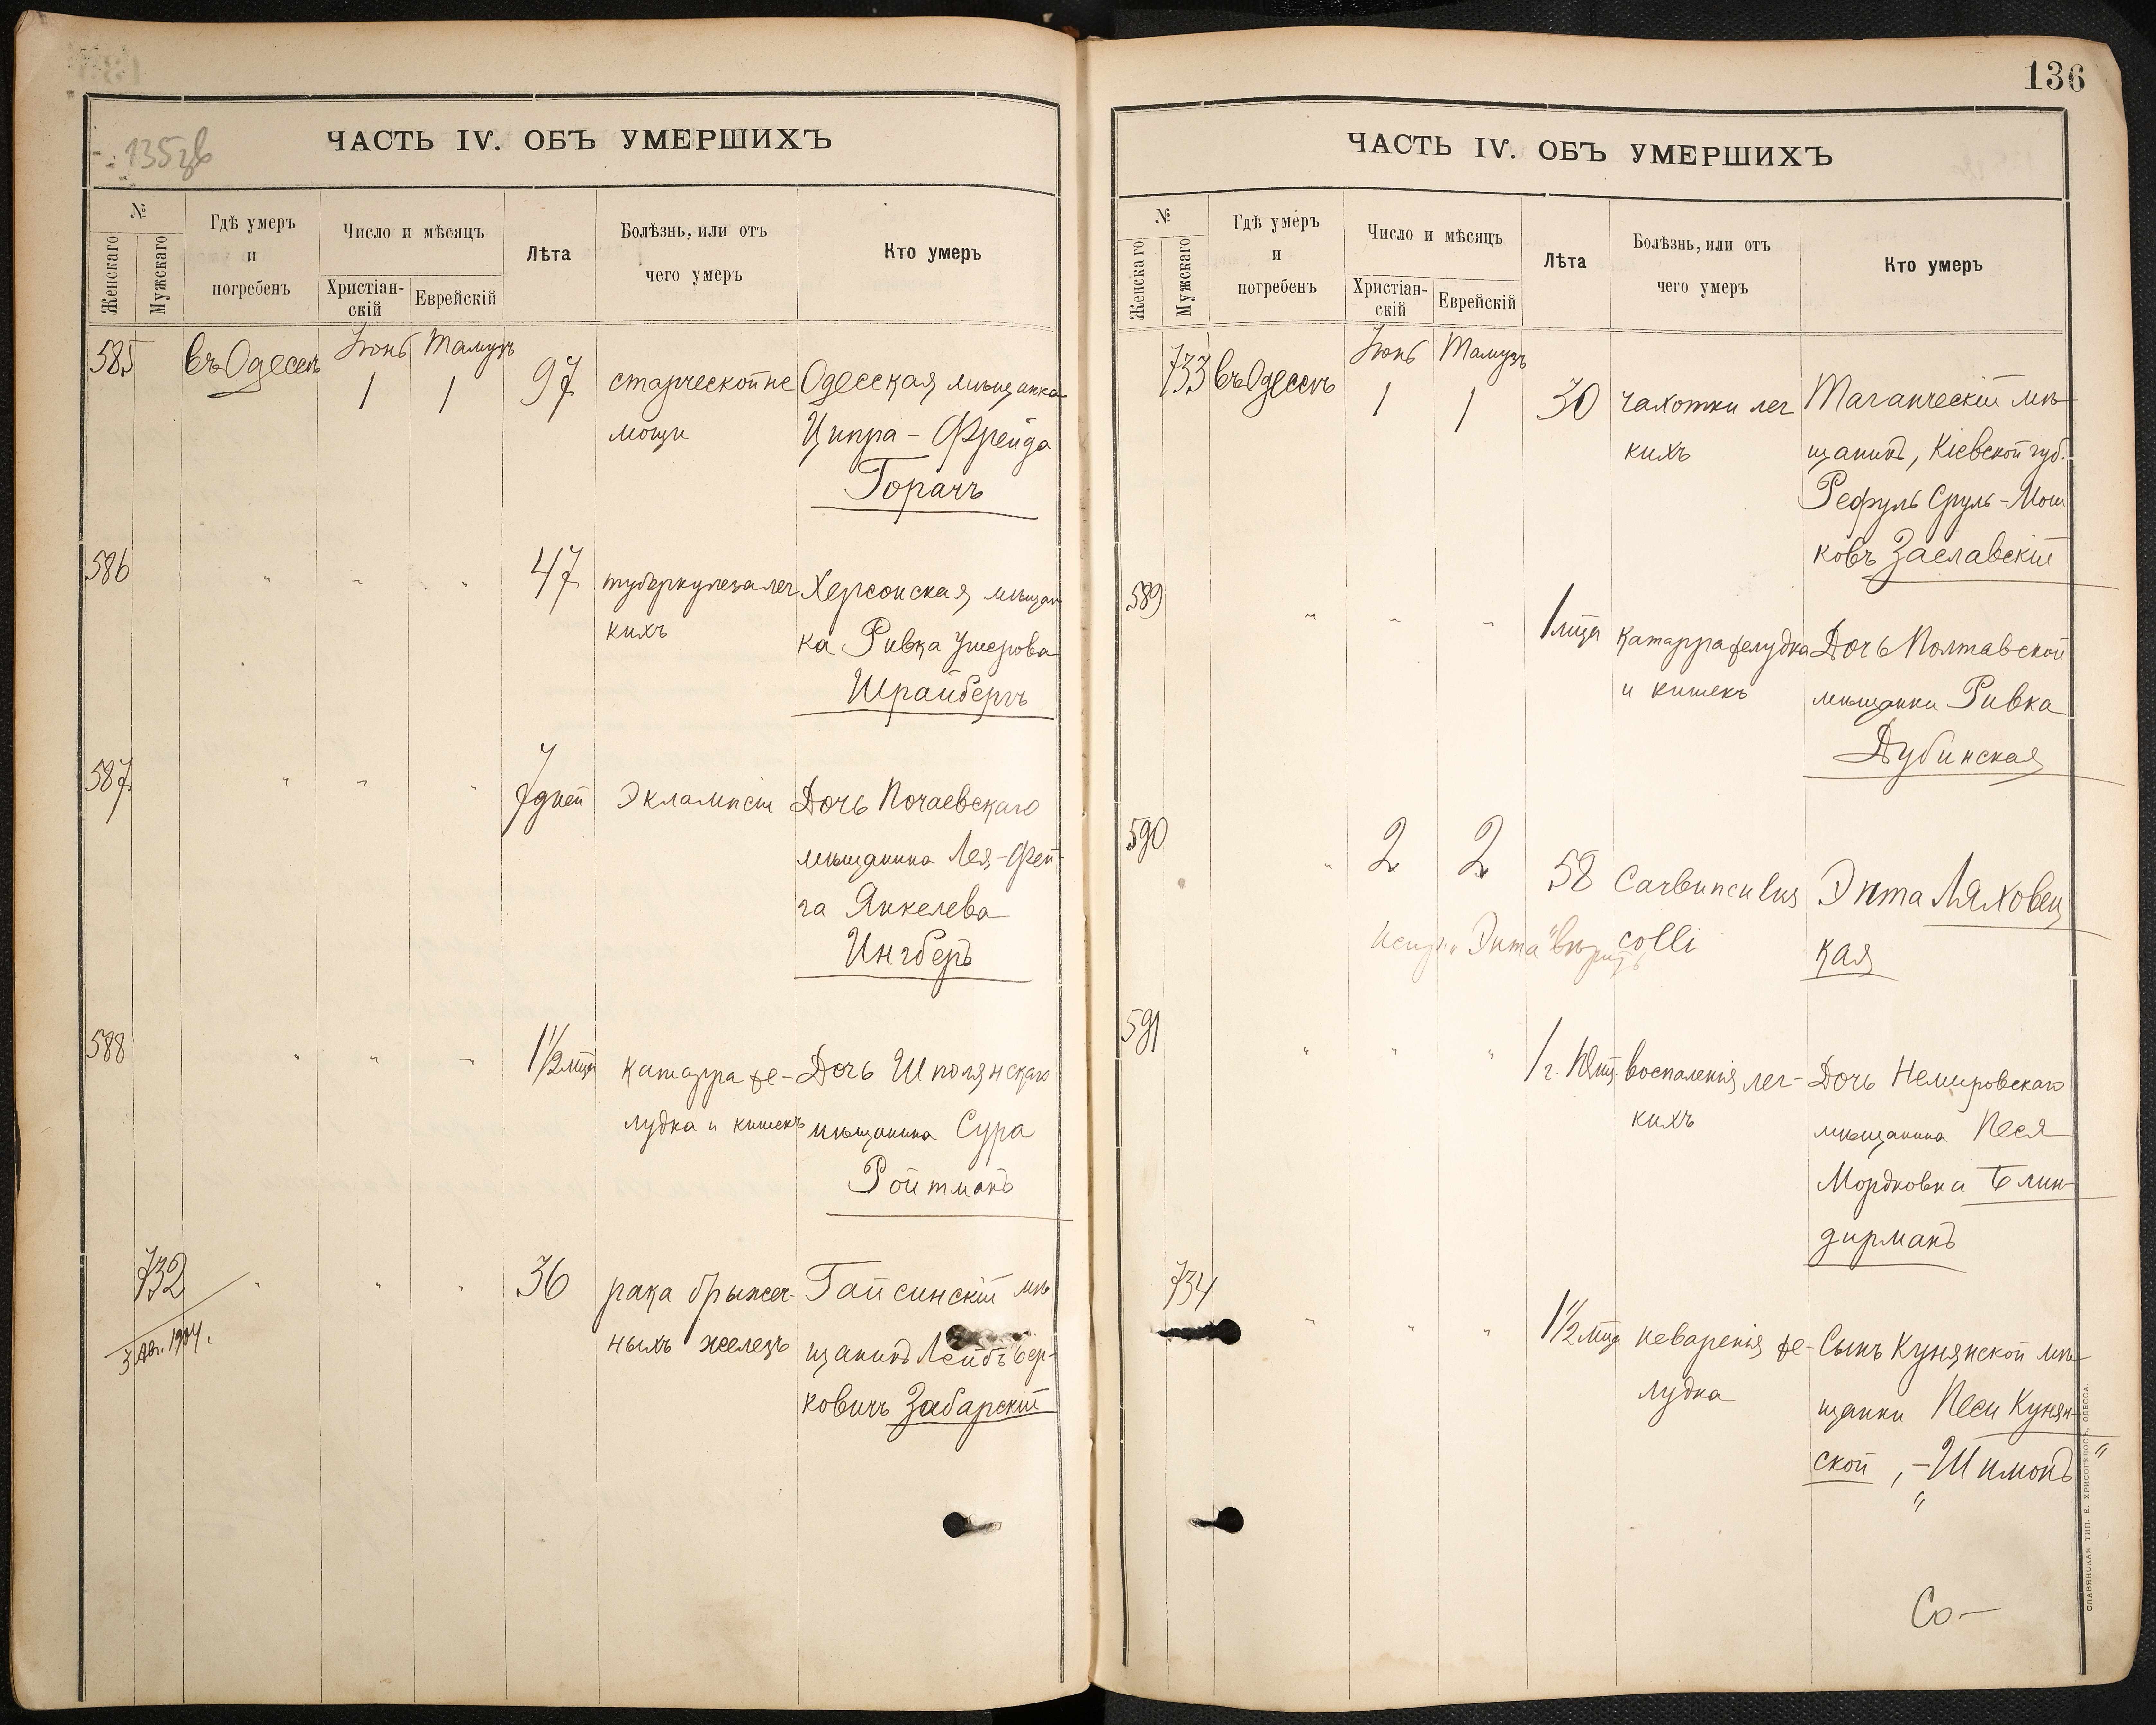 135зв
ЧАСТЬ IV. ОБЪ УМЕРШИХЪ
№
Женскаго
Мужскаго
Гдѣ умеръ
и
погребенъ
Число и мѣсяцъ
Христіан-
скій
Еврейскій
Лѣта
Болѣзнь, или отъ
чего умеръ
Кто умеръ
585 въ Одессѣ Іюнь 1 Тамузъ 1 97 старческой не Одесская мѣщанка
мощи Ципра - Фрейда
Горачъ
586 " " " 47 туберкулеза лег Херсонская мѣщан
кихъ ка Ривка Ушерова
Шрайбергъ
587 " " " 7 дней Эклампсіи Дочь Почаевскаго
мѣщанина Лея-Фей-
га Янкелева
Ингберъ
588 " " " 1 1/2 мца катарра же- Дочь Шполянскаго
лудка и кишекъ мѣщанина Сура
Ройтманъ
732 " " " 36 рака брыжеч- Гайсинскій мѣ
3 Авг. 1904 г.
ныхъ железъ щанинъ Лейбъ Бер-
ковичъ Забарскій
136
ЧАСТЬ IV. ОБЪ УМЕРШИХЪ
№
Женскаго
Мужскаго
Гдѣ умеръ
и
погребенъ
Число и мѣсяцъ
Христіан-
скій
Еврейскій
Лѣта
Болѣзнь, или отъ
чего умеръ
Кто умеръ
733 въ Одессѣ Іюнь 1 Тамузъ 1 30 чахотки лег Таганческій мѣ-
кихъ щанинъ, Кіевской губ.
Рефулъ Сруль-Мош
ковъ Заславскій
589 " " " 1 мца катарра желудка Дочь Полтавской
и кишекъ мѣщанки Ривка
Дубинская
590 " 2 2 58 Carbunculus Энта Ляховец
"Энта" colli кая
591 " " " 1 г. 10 мц. воспаленія лег- Дочь Немировскаго
кихъ мѣщанина Песя
Мордковна Блин-
дирманъ
734 " " " 1 1/2 мца неваренія же- Сынъ Кунянской мѣ-
лудка щанки Песи Кунян-
ской, - "Шимонъ"
Со-
СЛАВЯНСКАЯ ТИП. Е. ХРИСОГЕЛОСЪ, ОДЕССА.